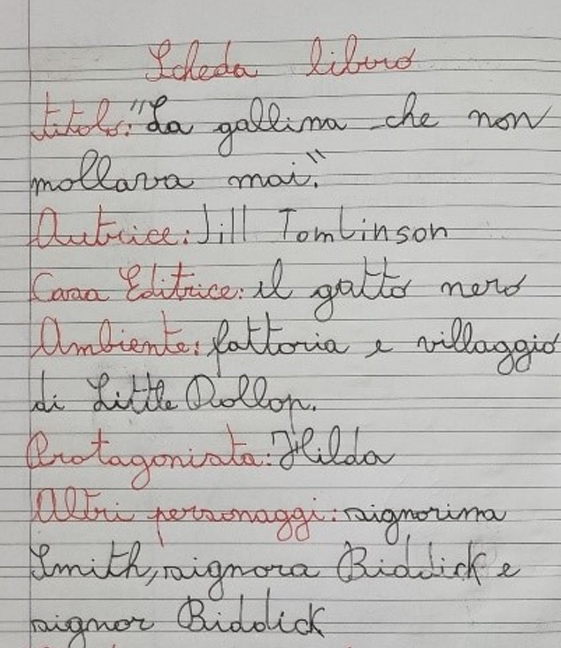 Scheda libro
titolo: "La gallina che non
mollava mai".
Autrice: Jill Tomlinson
Casa Editrice: il gatto nero
Ambiente: fattoria e villaggio
di Little Dollop.
Protagonista: Hilda
Altri personaggi: signorina
Smith, signora Biddick e
signor Biddick